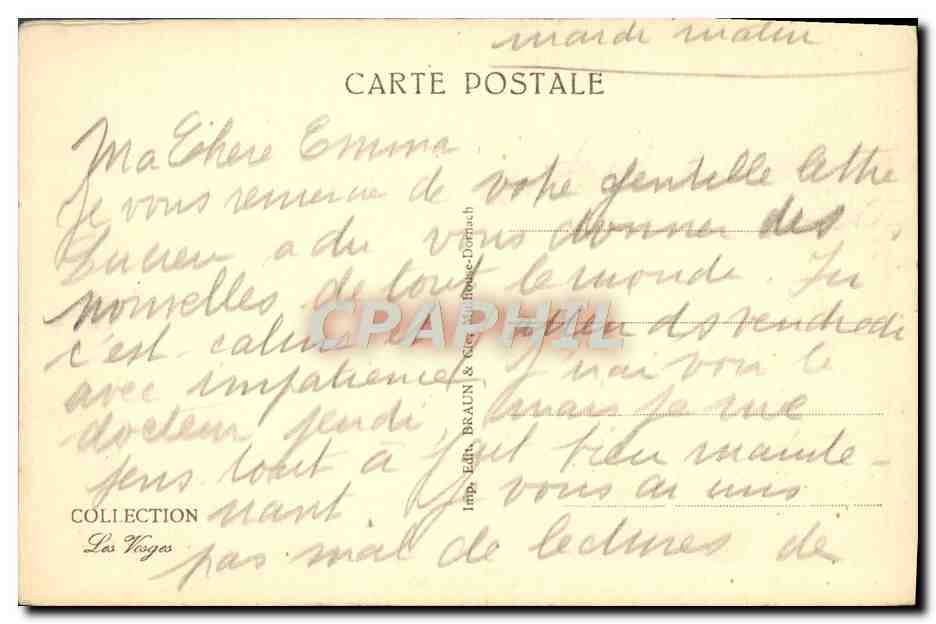 mardi matin
CARTE POSTALE
Ma Chère Emma
Je vous remercie de votre gentille lettre
Lucien a du vous donner des
nouvelles de tout le monde. Ici
c'est calme et j'attends vendredi
avec impatience. J'irai voir le
docteur jeudi, mais je me
sens tout à fait bien mainte-
nant. Je vous ai mis
pas mal de lectures de
COLLECTION
Les Vosges
Imp. Edit. BRAUN & Cie, Mulhouse-Dornach
CPAPHIL